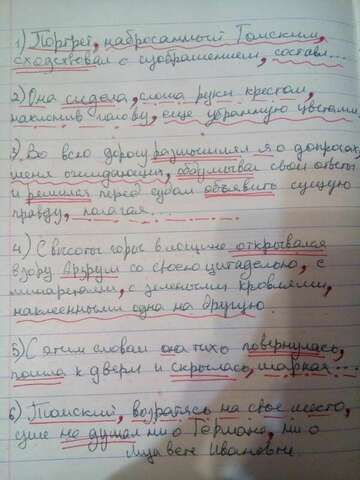 1) Портрет, набросанный Томским,
сходствовал с изображением, составл...
2) Она сидела, сложа руки крестом,
наклонив голову, еще убранную цветами.
3) Во всю дорогу размышлял я о допросах,
меня ожидающих, обдумывал свои ответы
и решился перед судом объявить сущую
правду, полагая...
4) С высоты горы в лощине открывался
взору Арзрум со своею цитаделью, с
минаретами, с зелеными кровлями,
наклеенными одна на другую.
5) С этим словом она тихо повернулась,
пошла к двери и скрылась, шаркая...
6) Томский, возвратясь на свое место,
уже не думал ни о Германе, ни о
Лизавете Ивановне.